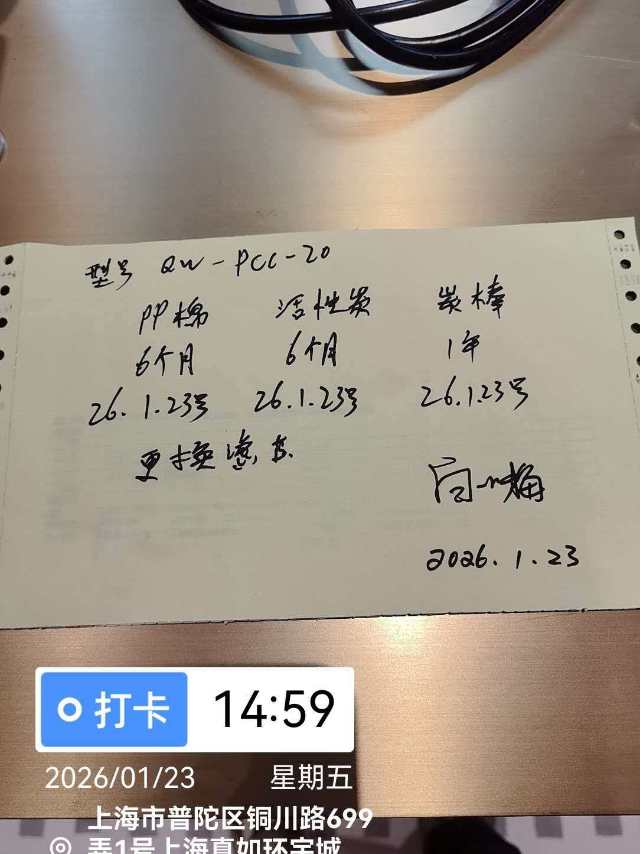 型号 QW-PCC-20
PP棉 活性炭 炭棒
6个月 6个月 1年
26.1.23号 26.1.23号 26.1.23号
更换滤芯.
2026.1.23
打卡 14:59
2026/01/23 星期五
上海市普陀区铜川路699
弄1号上海真如环宇城